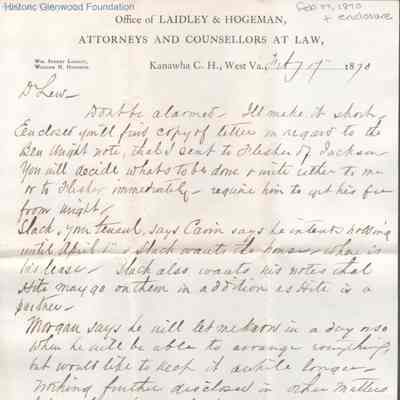 Historic Glenwood Foundation
Feb 17, 1870
+ enclosure
Office of LAIDLEY & HOGEMAN,
ATTORNEYS AND COUNSELLORS AT LAW,
WM. SYDNEY LAIDLEY,
WILLIAM H. HOGEMAN.
Kanawha C. H., West Va., Feby 17 1870
Dr Lew-
Dont be alarmed - I'll make it short
Enclosed you'll find copy of letter in regard to the
Ben Wright note, that I sent to Flesher of Jackson
You will decide whats to be done & write either to me
or to Flesher immediately - require him to get his fee
from Wright.
Slack, your tenant, says Cavin says he intends holding
until April 1st & Slack wants the house - where is
his lease - Slack also wants his notes that
Hite may go on them in addition as Hite is a
partner -
Morgan says he will let me know in a day or so
when he will be able to arrange everything,
but would like to keep it awhile longer -
Nothing further disclosed in other matters